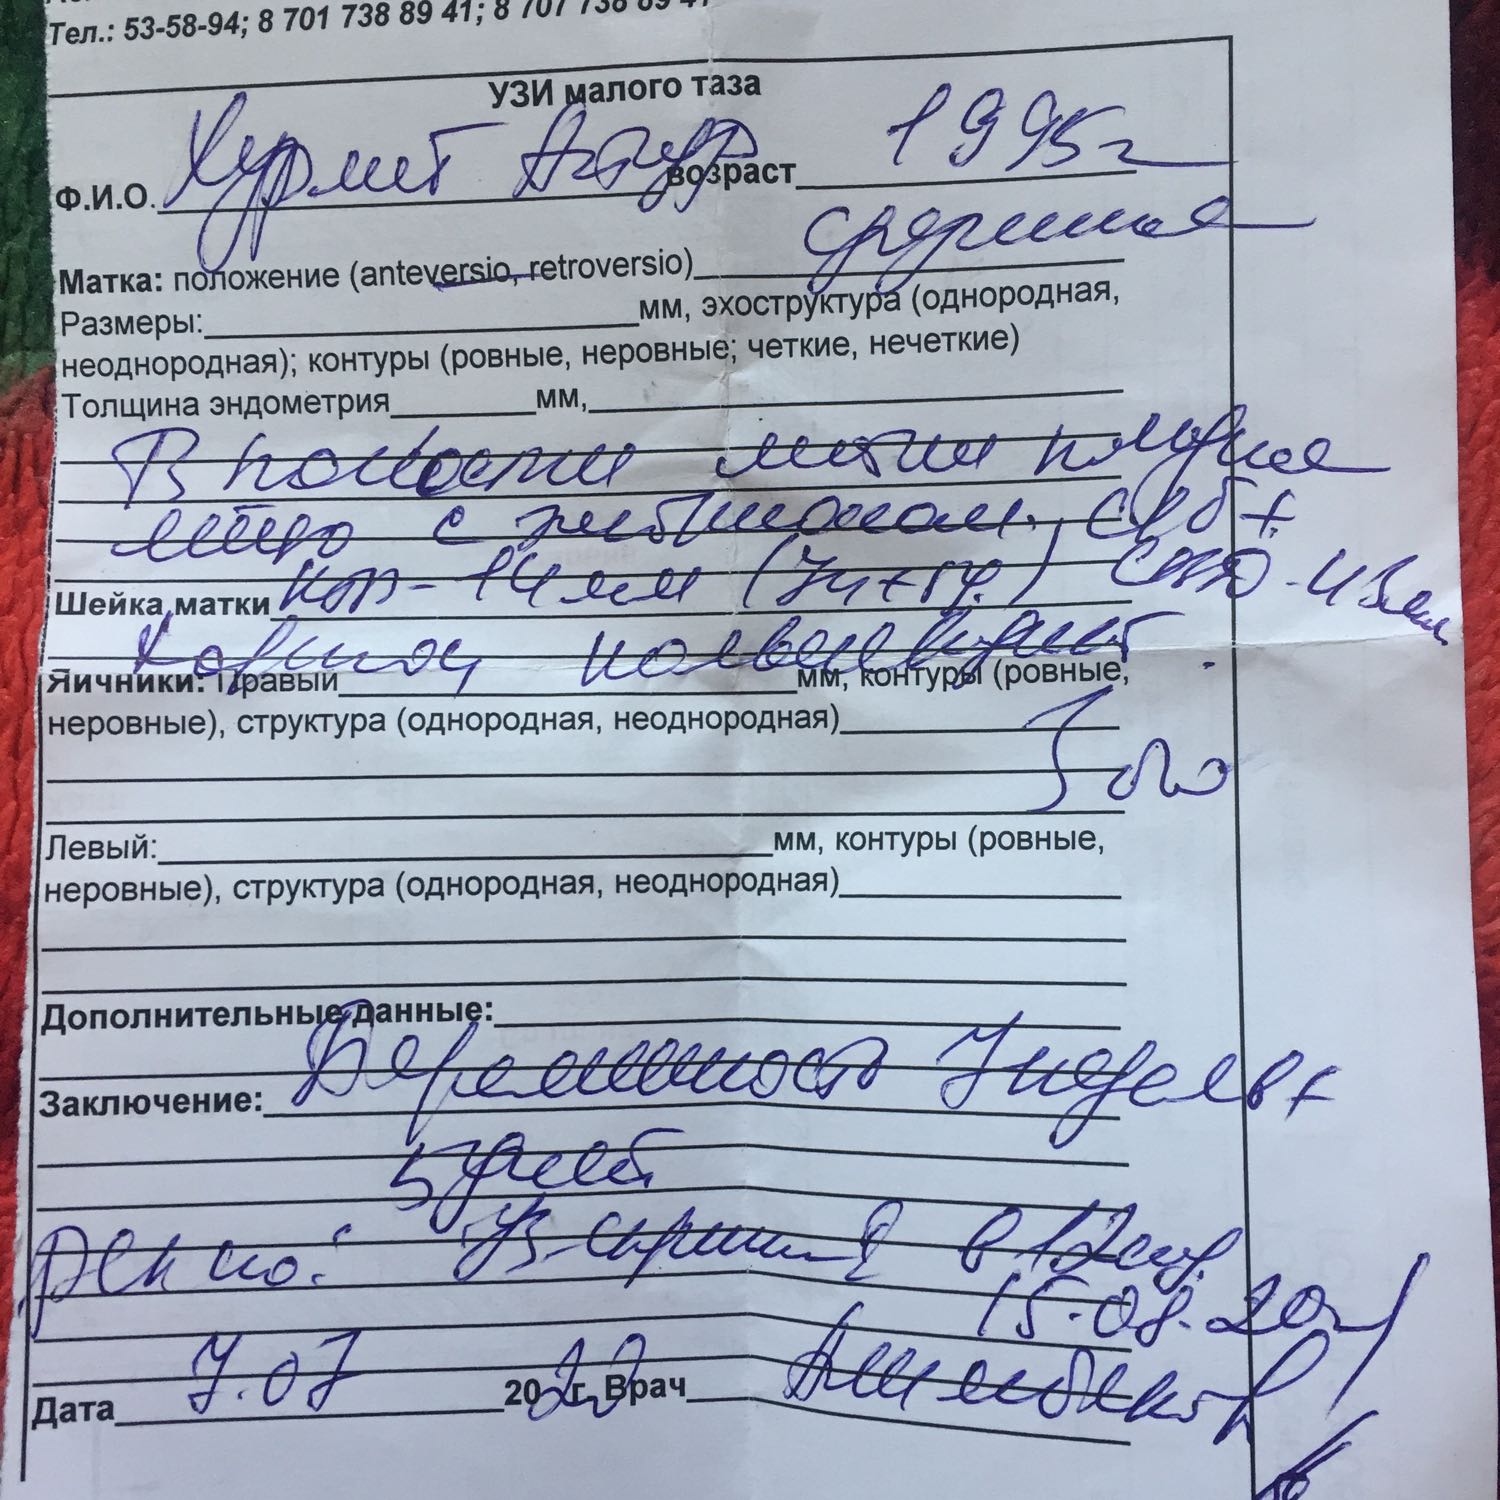 Тел.: 53-58-94; 8 701 738 89 41; 8 707 738 89 41
УЗИ малого таза
Ф.И.О. Хурмет возраст 1995г
Матка: положение (anteversio, retroversio) срединное
Размеры: мм, эхоструктура (однородная,
неоднородная); контуры (ровные, неровные; четкие, нечеткие)
Толщина эндометрия мм,
В полости матки плодное
яйцо с эмбрионом, с/б +
Шейка матки ктр - 14 мм (7н+5д.)
Хорион
Яичники: Правый мм, контуры (ровные,
неровные), структура (однородная, неоднородная)
Левый: мм, контуры (ровные,
неровные), структура (однородная, неоднородная)
Дополнительные данные:
Заключение: Беременность 7 недель +
5 дней
Рек-но: Уз-скрининг в 12 нед.
15.08.20
Дата 7.07 2020 г. Врач